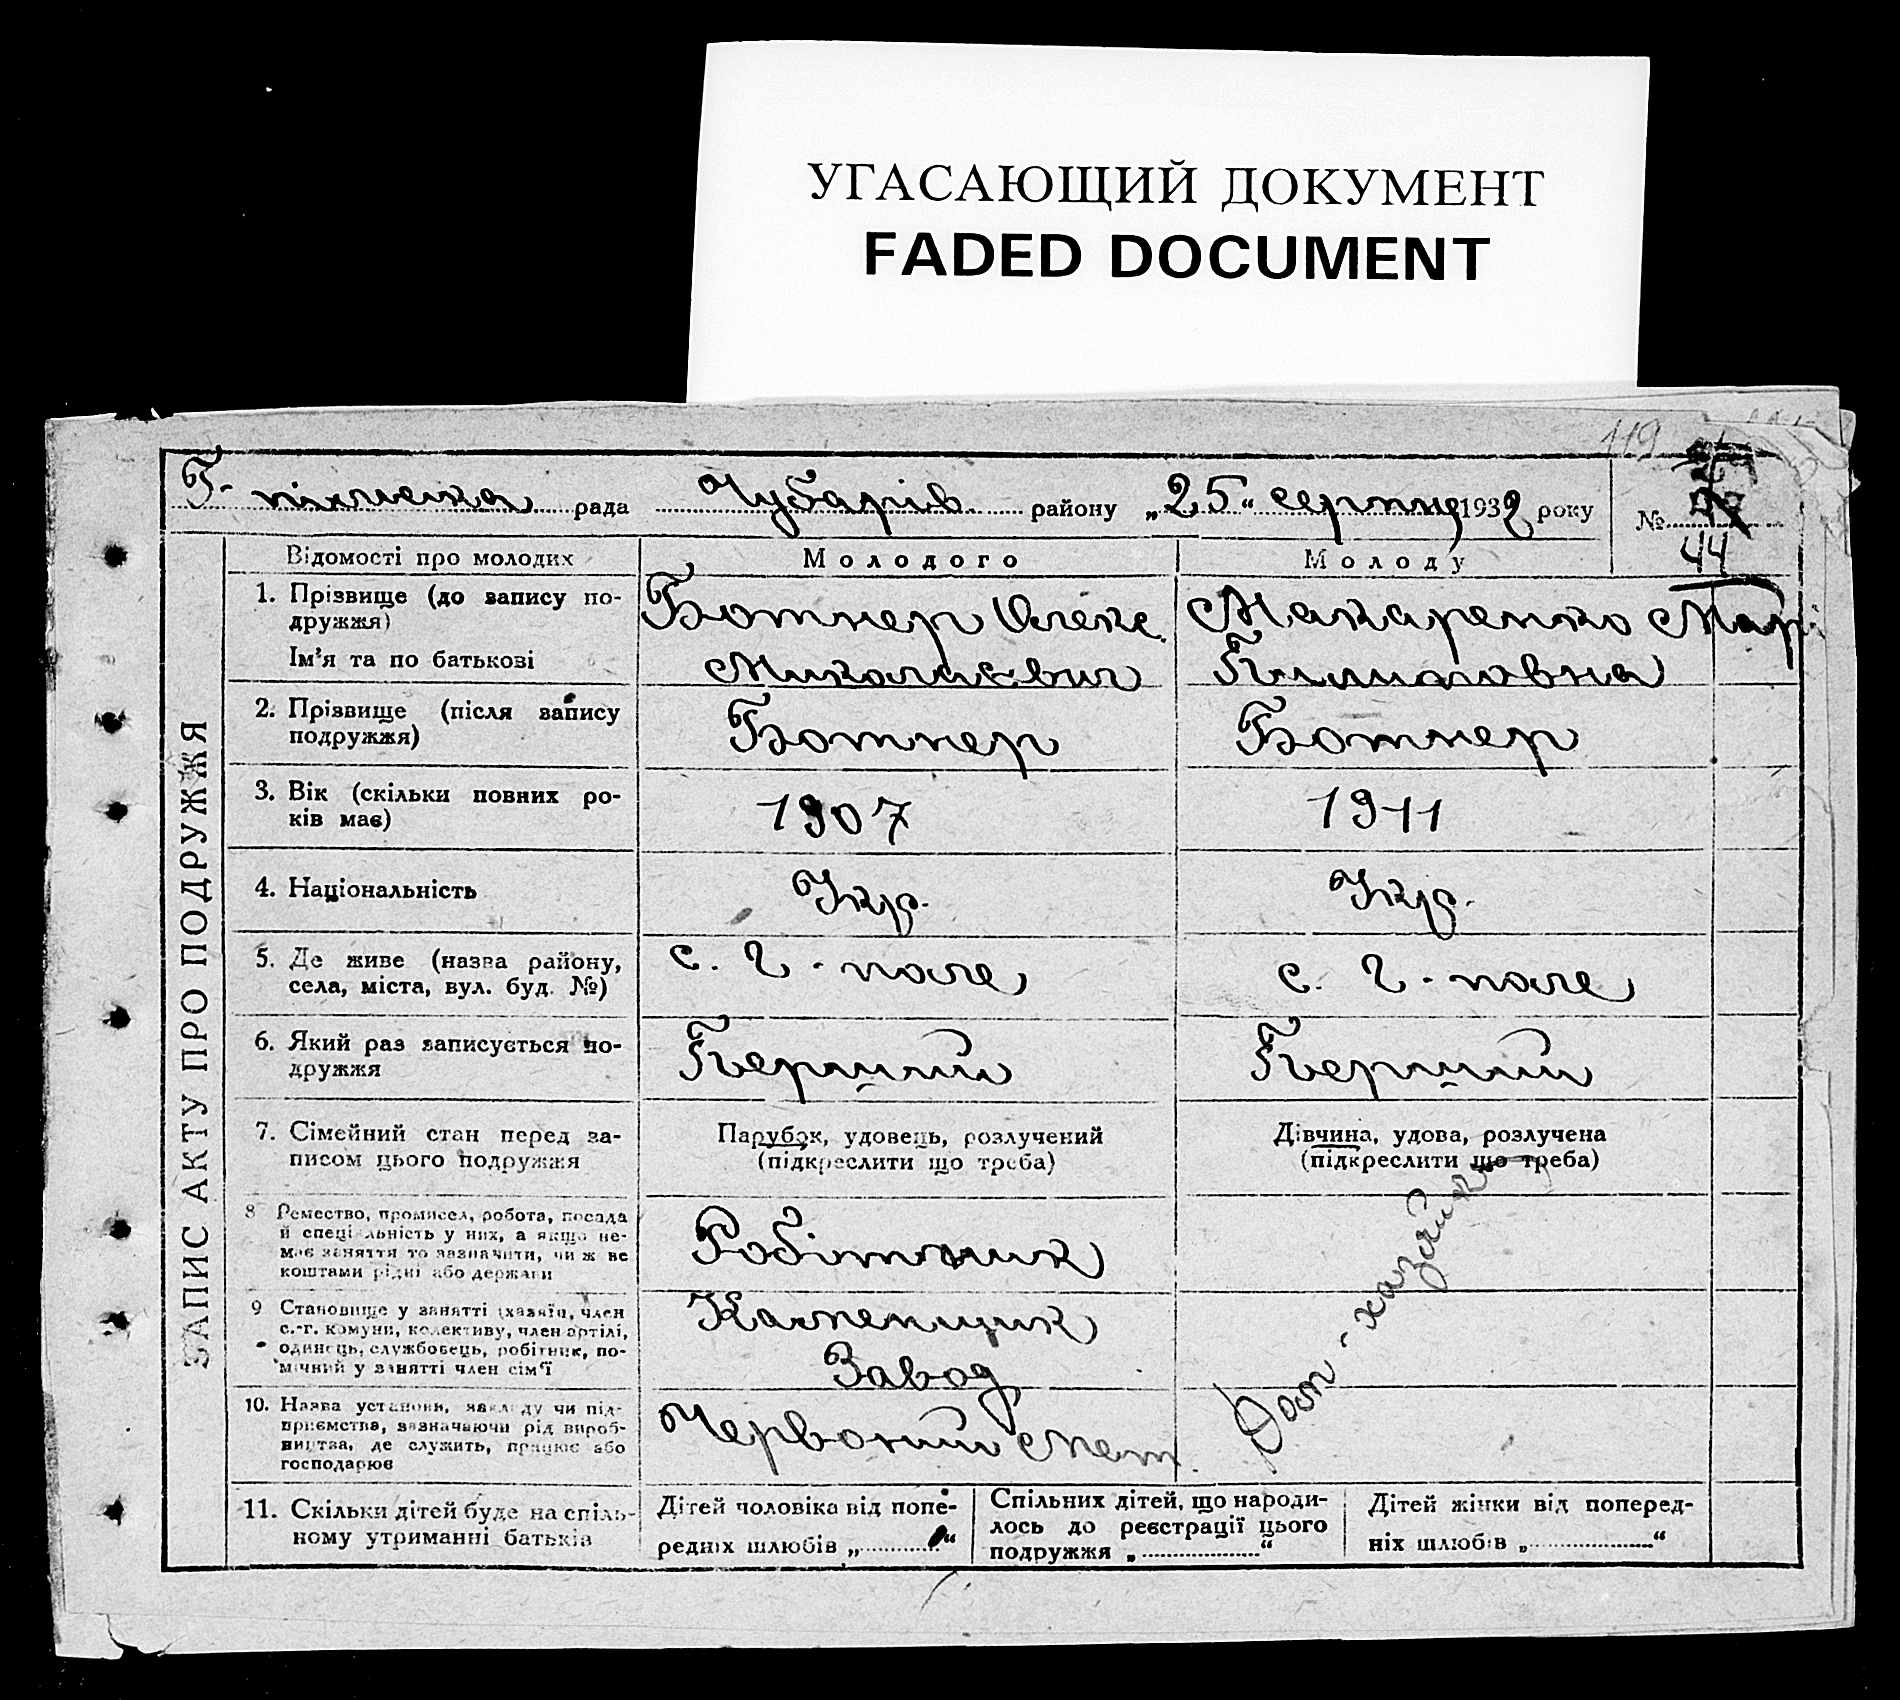 УГАСАЮЩИЙ ДОКУМЕНТ
FADED DOCUMENT
119
Г-пільська рада Чубарів. району „25“ серпня 1932 року №
44
ЗАПИС АКТУ ПРО ПОДРУЖЖЯ
Відомості про молодих
Молодого
Молоду
1. Прізвище (до запису по-
дружжя)
Ім'я та по батькові
Ботнер Олекс.
Миколаєвич
Макаренко Марі
Пилиповна
2. Прізвище (після запису
подружжя)
Ботнер
Ботнер
3. Вік (скільки повних ро-
ків має)
1907
1911
4. Національність
Укр.
Укр.
5. Де живе (назва району,
села, міста, вул. буд. №)
с. Г-поле
с. Г-поле
6. Який раз записується по-
дружжя
Перший
Перший
7. Сімейний стан перед за-
писом цього подружжя
Парубок, удовець, розлучений
(підкреслити що треба)
Дівчина, удова, розлучена
(підкреслити що треба)
8 Ремество, промисел, робота, посада
й спеціальність у них, а якщо не-
має заняття то зазначити, чи ж ве
коштами рідні або держави
Робітник
Дом-хазяйка
9 Становище у занятті (хазяїн, член
с.-г. комуни, колективу, член артілі,
одинець, службовець, робітник, по-
мічний у занятті член сім'ї
Завод
10. Назва установи, закладу чи під-
приємства, зазначаючи рід вироб-
ництва, де служить, працює або
господарює
Червоний Мет.
11. Скільки дітей буде на спіль-
ному утриманні батьків
Дітей чоловіка від попе-
редніх шлюбів „ “
Спільних дітей, що народи-
лось до реєстрації цього
подружжя „ “
Дітей жінки від поперед-
ніх шлюбів „ “